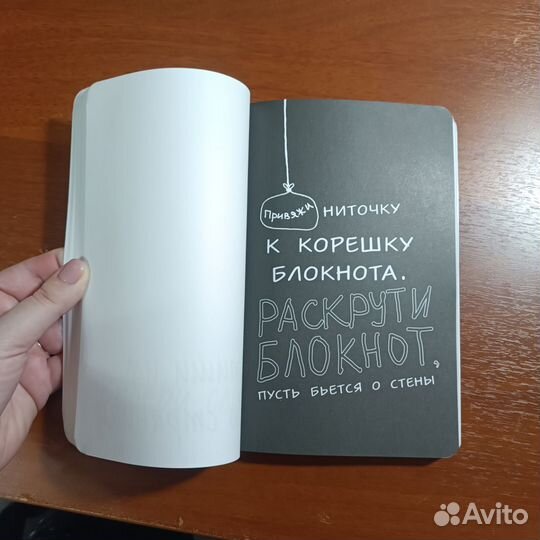 Привяжи ниточку
к корешку
блокнота.
РАСКРУТИ
БЛОКНОТ,
пусть бьется о стены
Avito